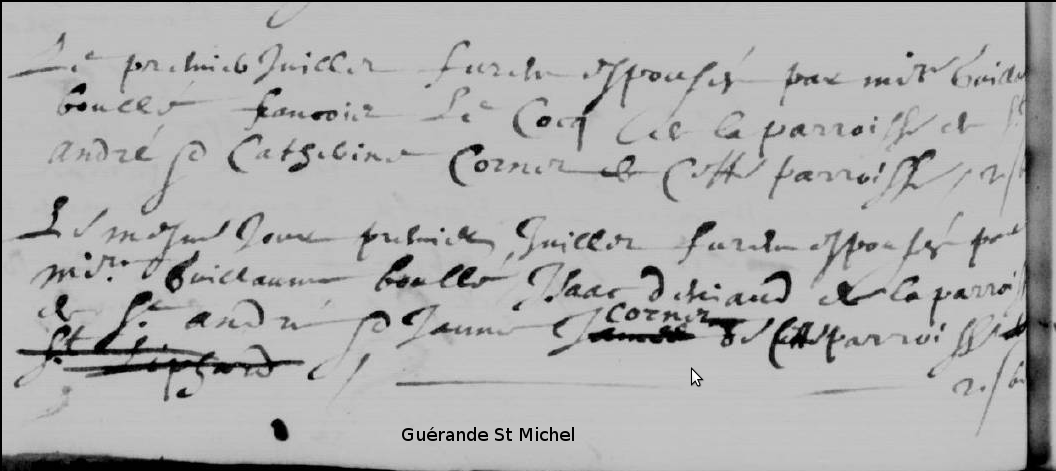 Le premier Juillet furent espousés par mire Guill
boullé francois Le Cocq de la parroisse de St
André & Catherine Corner de Cette parroisse,
Le mesme Jour premier Juillet furent espousés par
mire. Guillaume boullé Isaac deniaud de la parroi
de St André & Janne Corner de Cette parroisse
St Liphard
Guérande St Michel